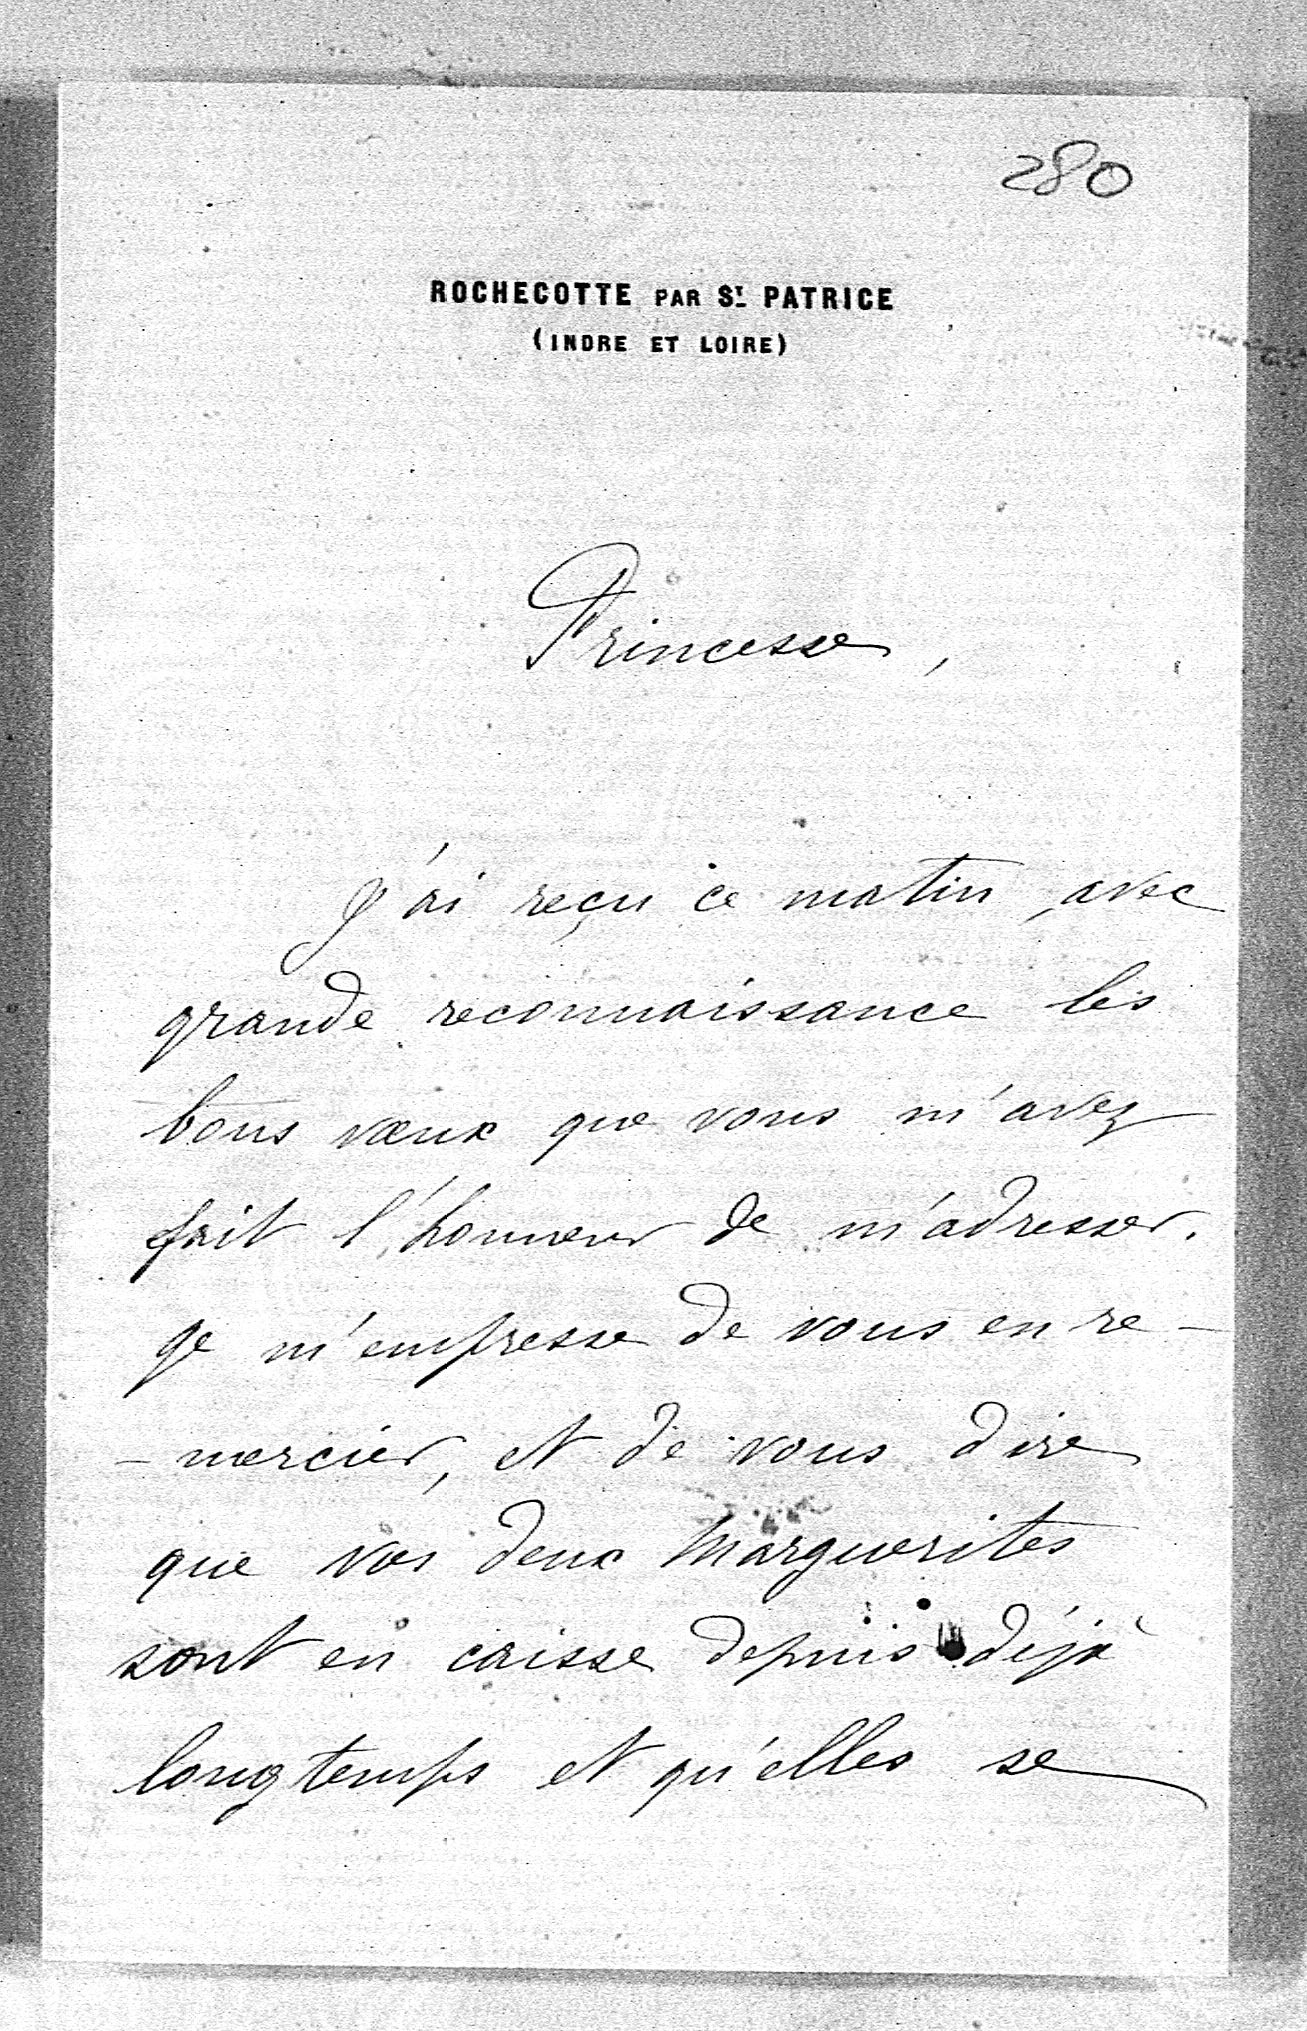 280
ROCHECOTTE PAR ST PATRICE
(INDRE ET LOIRE)
Princesse,
J'ai reçu ce matin avec
grande reconnaissance les
bons vœux que vous m'avez
fait l'honneur de m'adresser.
Je m'empresse de vous en re-
-mercier, et de vous dire
que vos deux Marguerites
sont en caisse depuis déjà
longtemps et qu'elles se